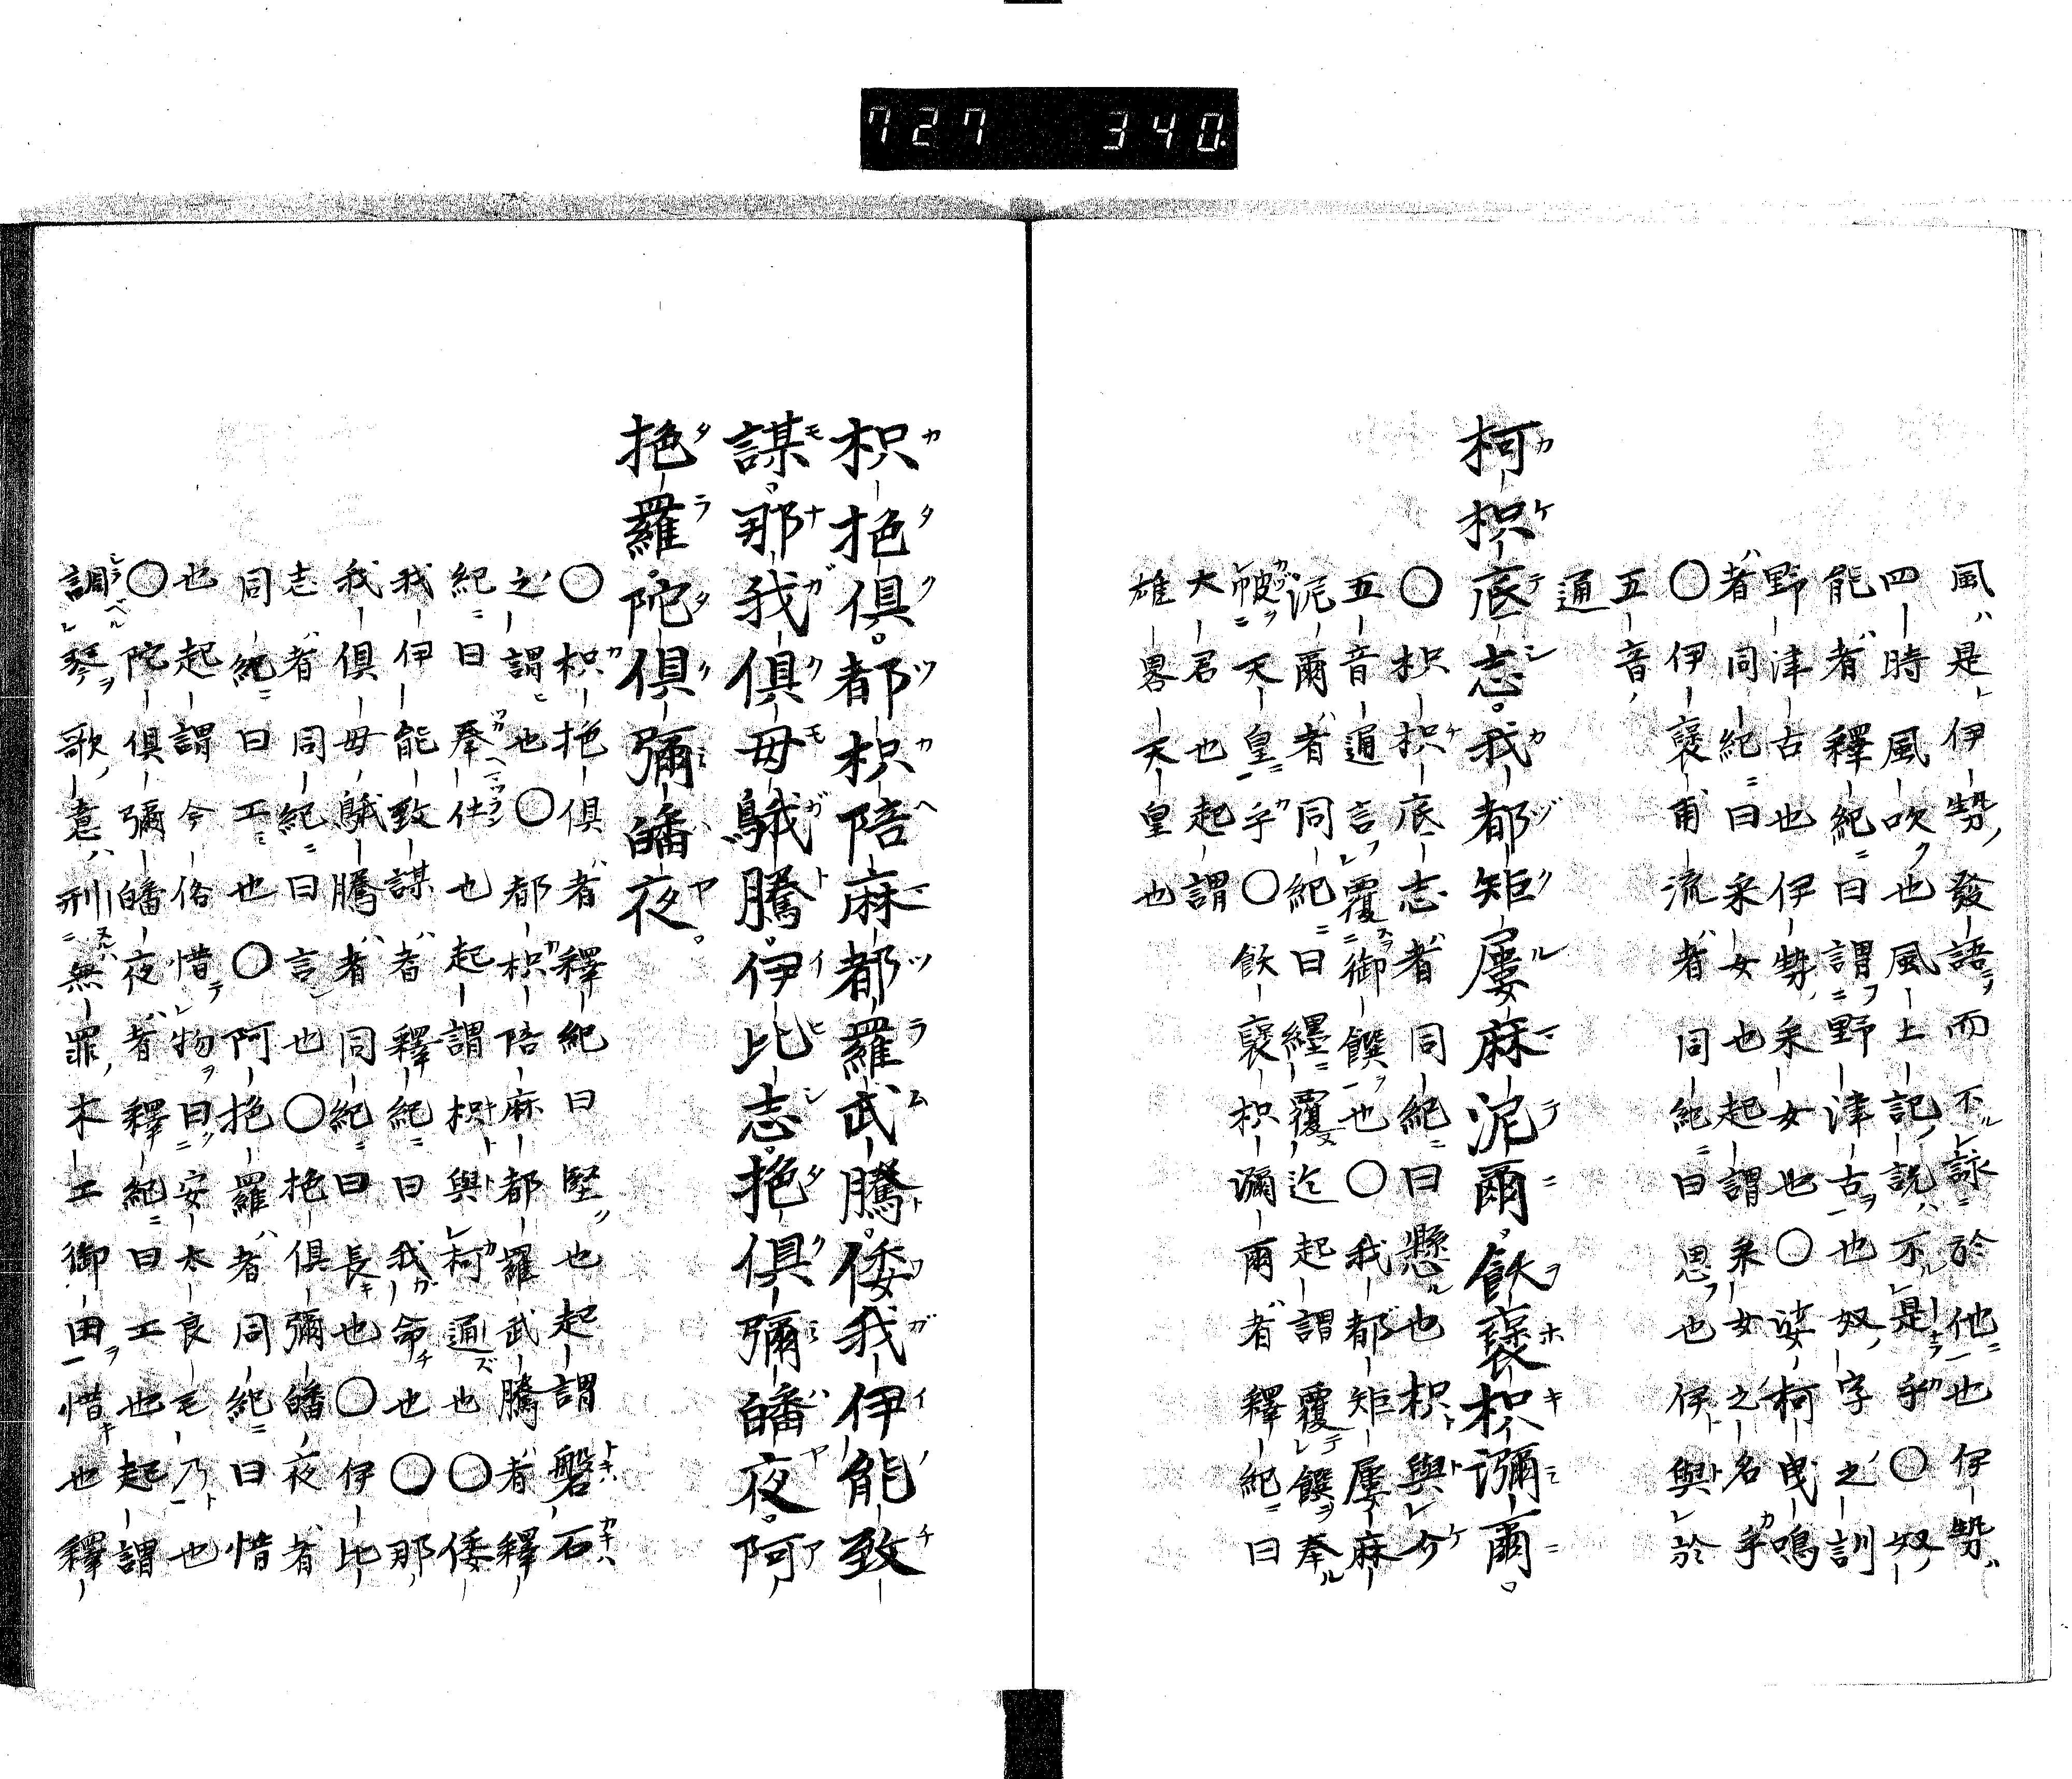 727 340
風是伊勢發語而不詠於他也伊勢
四時風吹也風土記説不是乎〇奴
能者釋紀曰謂野津古也奴字之訓
野津古也伊勢采女也〇娑柯曳鳴
者同紀曰采女也起謂采女之名乎
〇伊褒甫流者同紀曰思也伊與於
五音
通
柯枳底志我都矩屢麻泥爾飫褒枳瀰爾
〇枳枳底志者同紀曰懸也枳與介
五音通言覆御饌也〇我都矩屢麻
泥爾者同紀曰纒覆迄起謂覆饌奉
帔天皇乎〇飫褒枳瀰爾者釋紀曰
大君也起謂
雄畧天皇也
枳拕俱都枳陪麻都羅武騰倭我伊能致
謀那我俱母鵝騰伊比志拕俱彌皤夜阿
拕羅陀俱彌皤夜
〇枳拕俱者釋紀曰堅也起謂磐石
之謂也〇都枳陪麻都羅武騰者釋
紀曰奉仕也起謂枳與柯通也〇倭
我伊能致謀者釋紀曰我命也〇那
我俱母鵝騰者同紀曰長也〇伊比
志者同紀曰言也〇拕俱彌皤夜者
同紀曰工也〇阿拕羅者同紀曰惜
也起謂今俗惜物曰安太良毛乃也
〇陀俱彌皤夜者釋紀曰工也起謂
調琴歌意刑無罪木工御田惜也釋